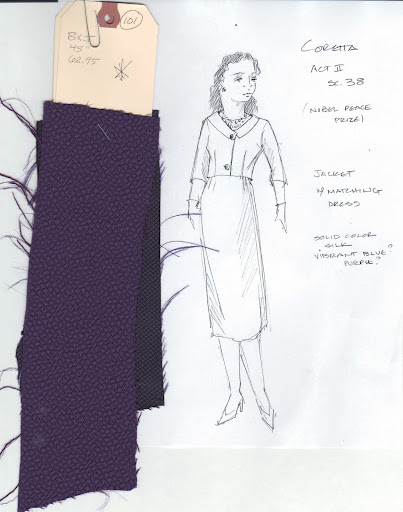 101
B&J
45"
62.95
CORETTA
ACT II
SC. 38
(NOBEL PEACE
PRIZE)
JACKET
W/ MATCHING
DRESS
SOLID COLOR
SILK
"VIBRANT BLUE"
PURPLE?